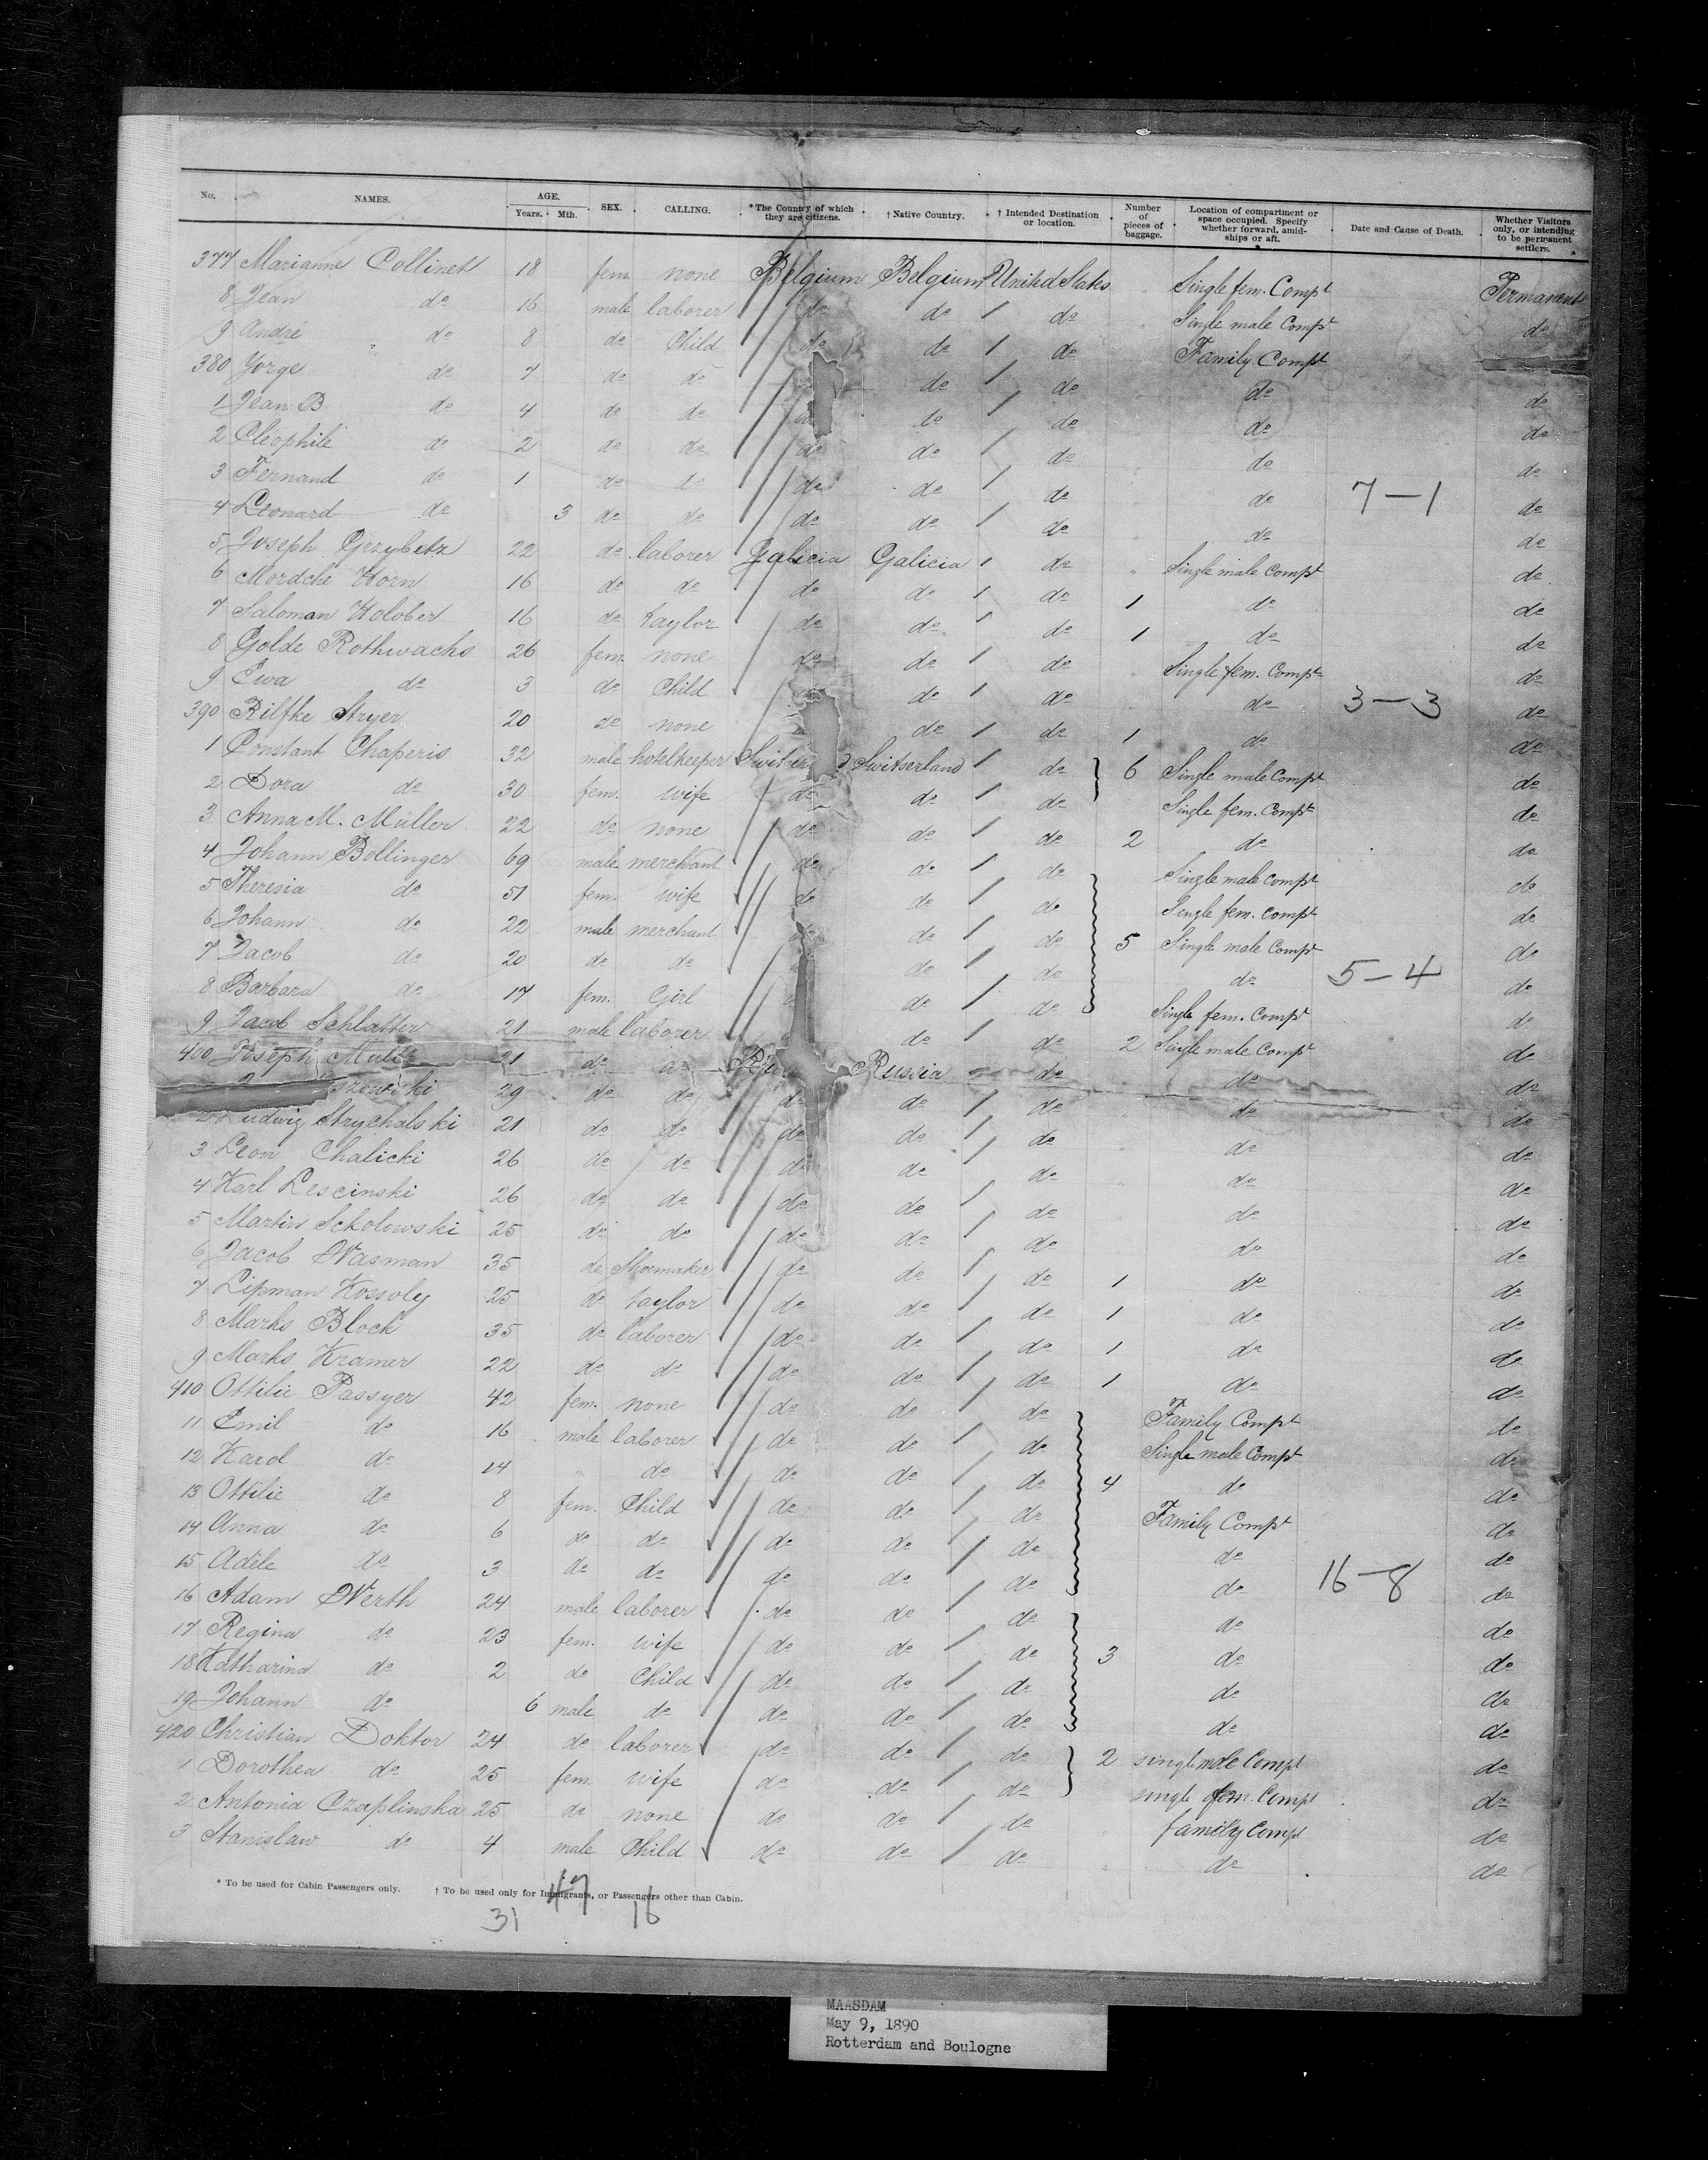 No. NAMES. AGE. Years. Mth. SEX. CALLING. *The Country of which they are citizens. † Native Country. † Intended Destination or location. Number of pieces of baggage. Location of compartment or space occupied. Specify whether forward, amidships or aft. Date and Cause of Death. Whether Visitors only, or intending to be permanent settlers.
377 Marianne Collinet 18 fem. none Belgium Belgium United States Single fem. Compt Permanent
8 Jean do 16 male laborer do do do Single male Compt do
9 André do 8 do Child do do do Family Compt
380 Yorge do 7 do do do do do do
1 Jean B. do 4 do do do do do do
2 Cleophile do 2 do do do do do do do
3 Fernand do 1 do do do do do do 7-1 do
4 Leonard do 3 do do do do do do do
5 Joseph Grzybetz 22 do laborer Galicia Galicia do " Single male Compt do
6 Mordche Horn 16 do do do do do 1 do do
7 Saloman Holober 16 do taylor do do do 1 do do
8 Golde Rothwachs 26 fem. none do do do Single fem. Compt do
9 Ewa do 3 do Child do do do 3-3 do
390 Rilfke Stryer 20 do none do do 1 do do
1 Constant Chaperis 32 male hotelkeeper Switser d Switserland do 6 Single male Compt do
2 Dora do 30 fem. wife do do do Single fem. Compt do
3 Anna M. Müller 22 do none do do do 2 do do
4 Johann Bollinger 69 male merchant do do do Single male Compt do
5 Theresia do 51 fem. wife do do do Single fem. Compt do
6 Johann do 22 male merchant do do 5 Single male Compt do
7 Jacob do 20 do do do do do 5-4 do
8 Barbara do 17 fem. Girl do do Single fem. Compt do
9 Jacob Schlatter 21 male laborer do do 2 Single male Compt do
400 Joseph 21 do do Russia do do do
29 do do do do do do do
2 Ludwig Strychalski 21 do do do do do do do
3 Leon Chalicki 26 do do do do do do do
4 Karl Lescinski 26 do do do do do do do
5 Martin Scholowski 25 do do do do do do do
6 Jacob Wasman 35 do Shoemaker do do do 1 do do
7 Lipman Kossoly 25 do taylor do do do 1 do do
8 Marks Block 35 do laborer do do do 1 do do
9 Marks Kramer 22 do do do do do 1 do do
410 Ottilie Passyer 42 fem. none do do do Family Compt do
11 Emil do 16 male laborer do do do Single male Compt do
12 Karol do 14 " do do do do 4 do do
13 Ottilie do 8 fem. Child do do do Family Compt do
14 Anna do 6 do do do do do do do
15 Adéle do 3 do do do do do do 16-8 do
16 Adam Werth 24 male laborer do do do do do
17 Regina do 23 fem. wife do do do 3 do do
18 Katharina do 2 do Child do do do do do
19 Johann do 6 male do do do do do do
420 Christian Doktor 24 do laborer do do do 2 single male Compt do
1 Dorothea do 25 fem. wife do do do single fem. Compt do
2 Antonia Czaplinska 25 do none do do do family Compt do
3 Stanislaw do 4 male Child do do do do do
* To be used for Cabin Passengers only. † To be used only for Immigrants, or Passengers other than Cabin.
47
31 16
MAASDAM
May 9, 1890
Rotterdam and Boulogne